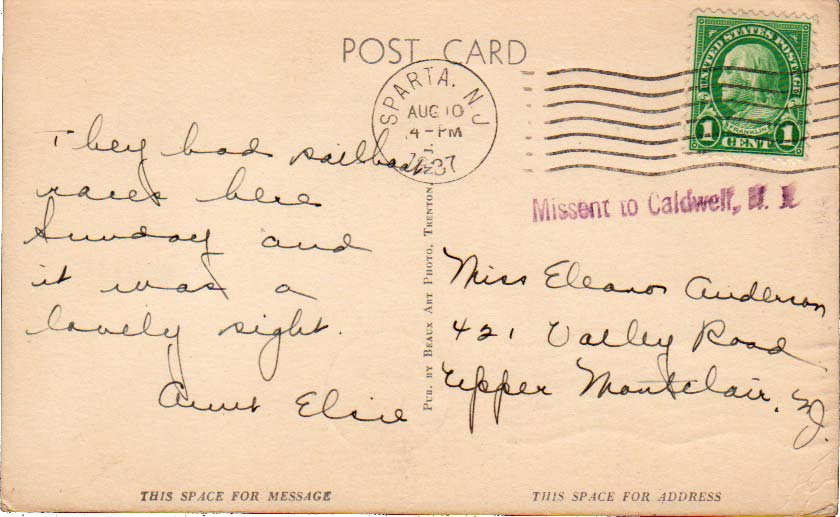 POST CARD
SPARTA, N.J.
AUG 10
4-PM
1937
UNITED STATES POSTAGE
FRANKLIN
1 CENT 1
Missent to Caldwell, N. J.
They had sailboat
races here
Sunday and
it was a
lovely sight.
Aunt Elsie
PUB. BY BEAUX ART PHOTO, TRENTON, N. J.
Miss Eleanor Anderson
421 Valley Road
Upper Montclair, NJ.
THIS SPACE FOR MESSAGE
THIS SPACE FOR ADDRESS